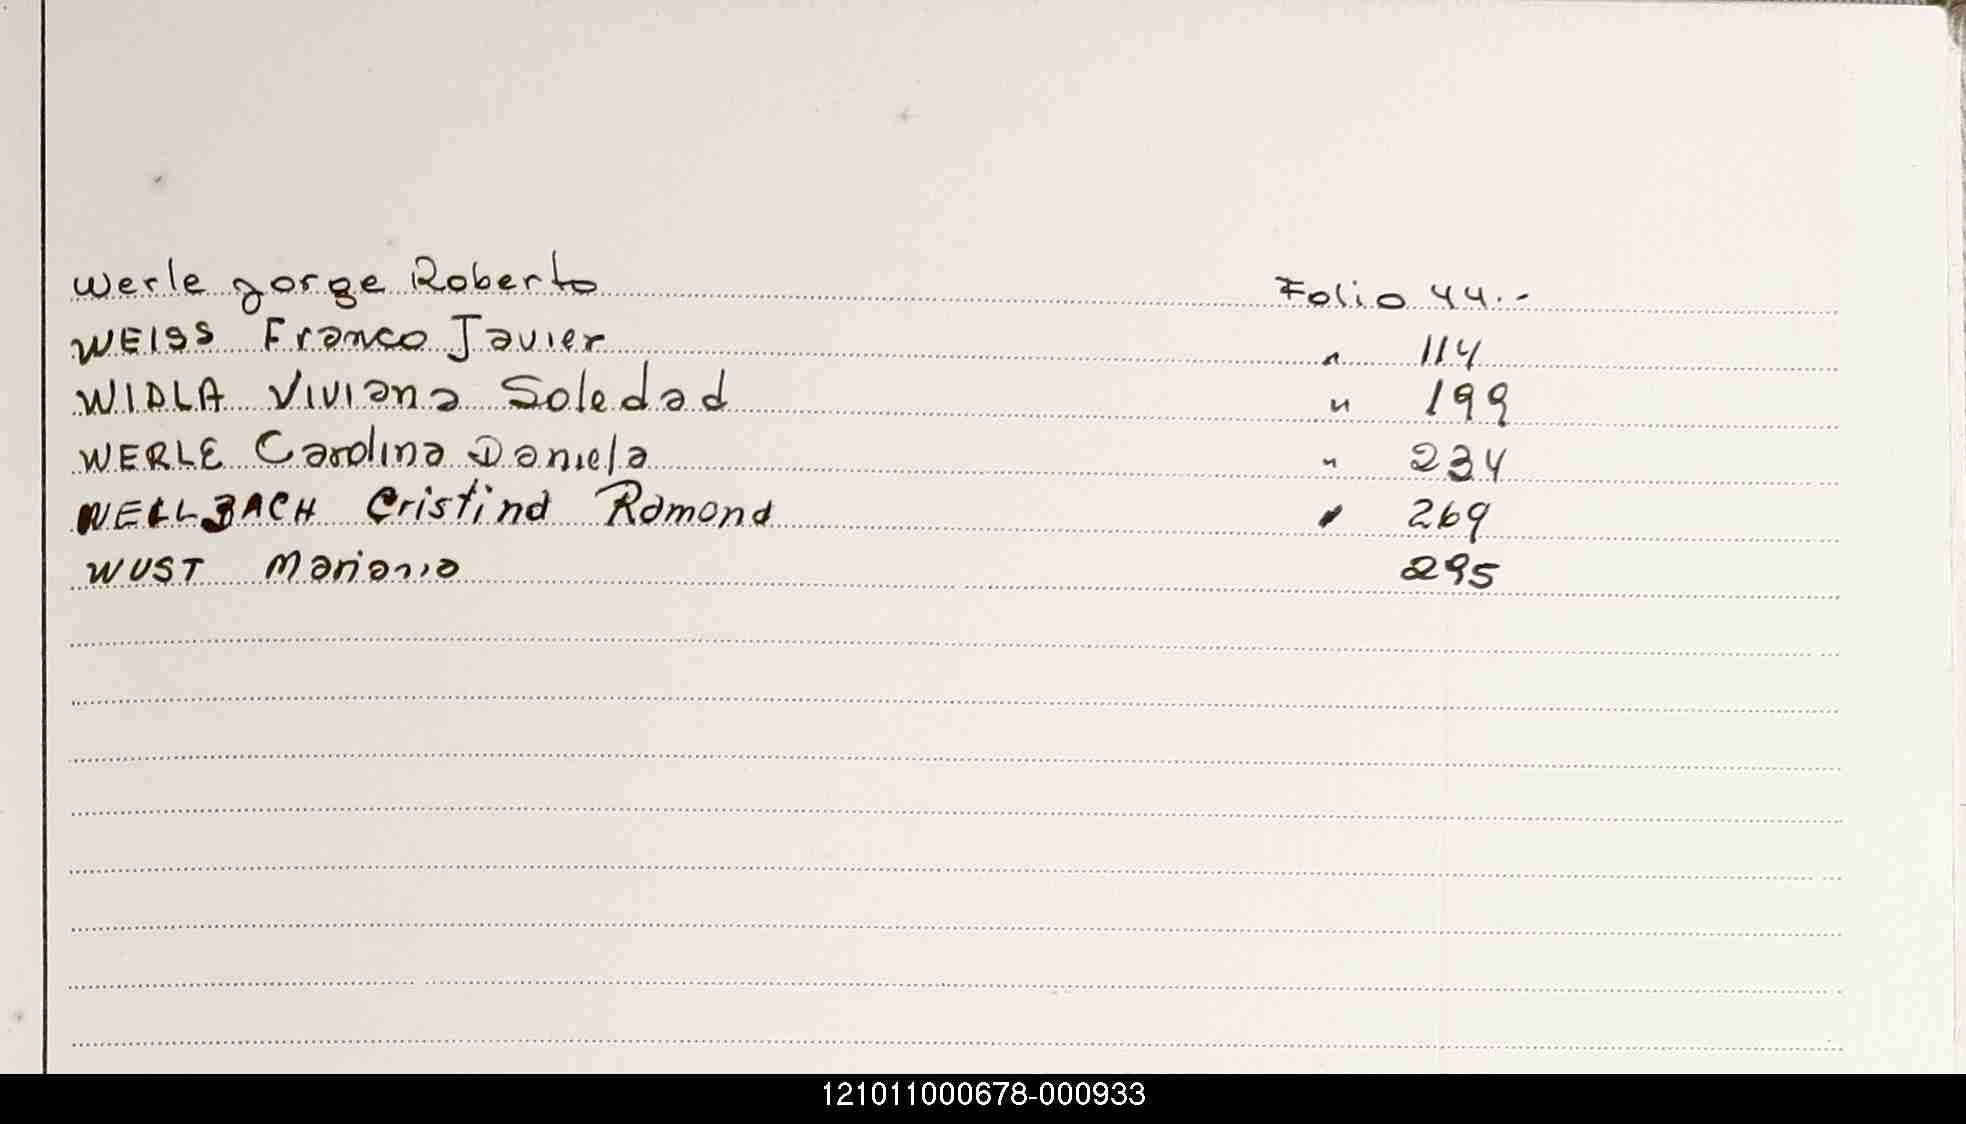 Werle Jorge Roberto Folio 44.-
WEISS Franco Javier " 114
WIDLA Viviana Soledad " 199
WERLE Carolina Daniela " 234
WELLBACH Cristina Ramona " 269
WUST 295
121011000678-000933